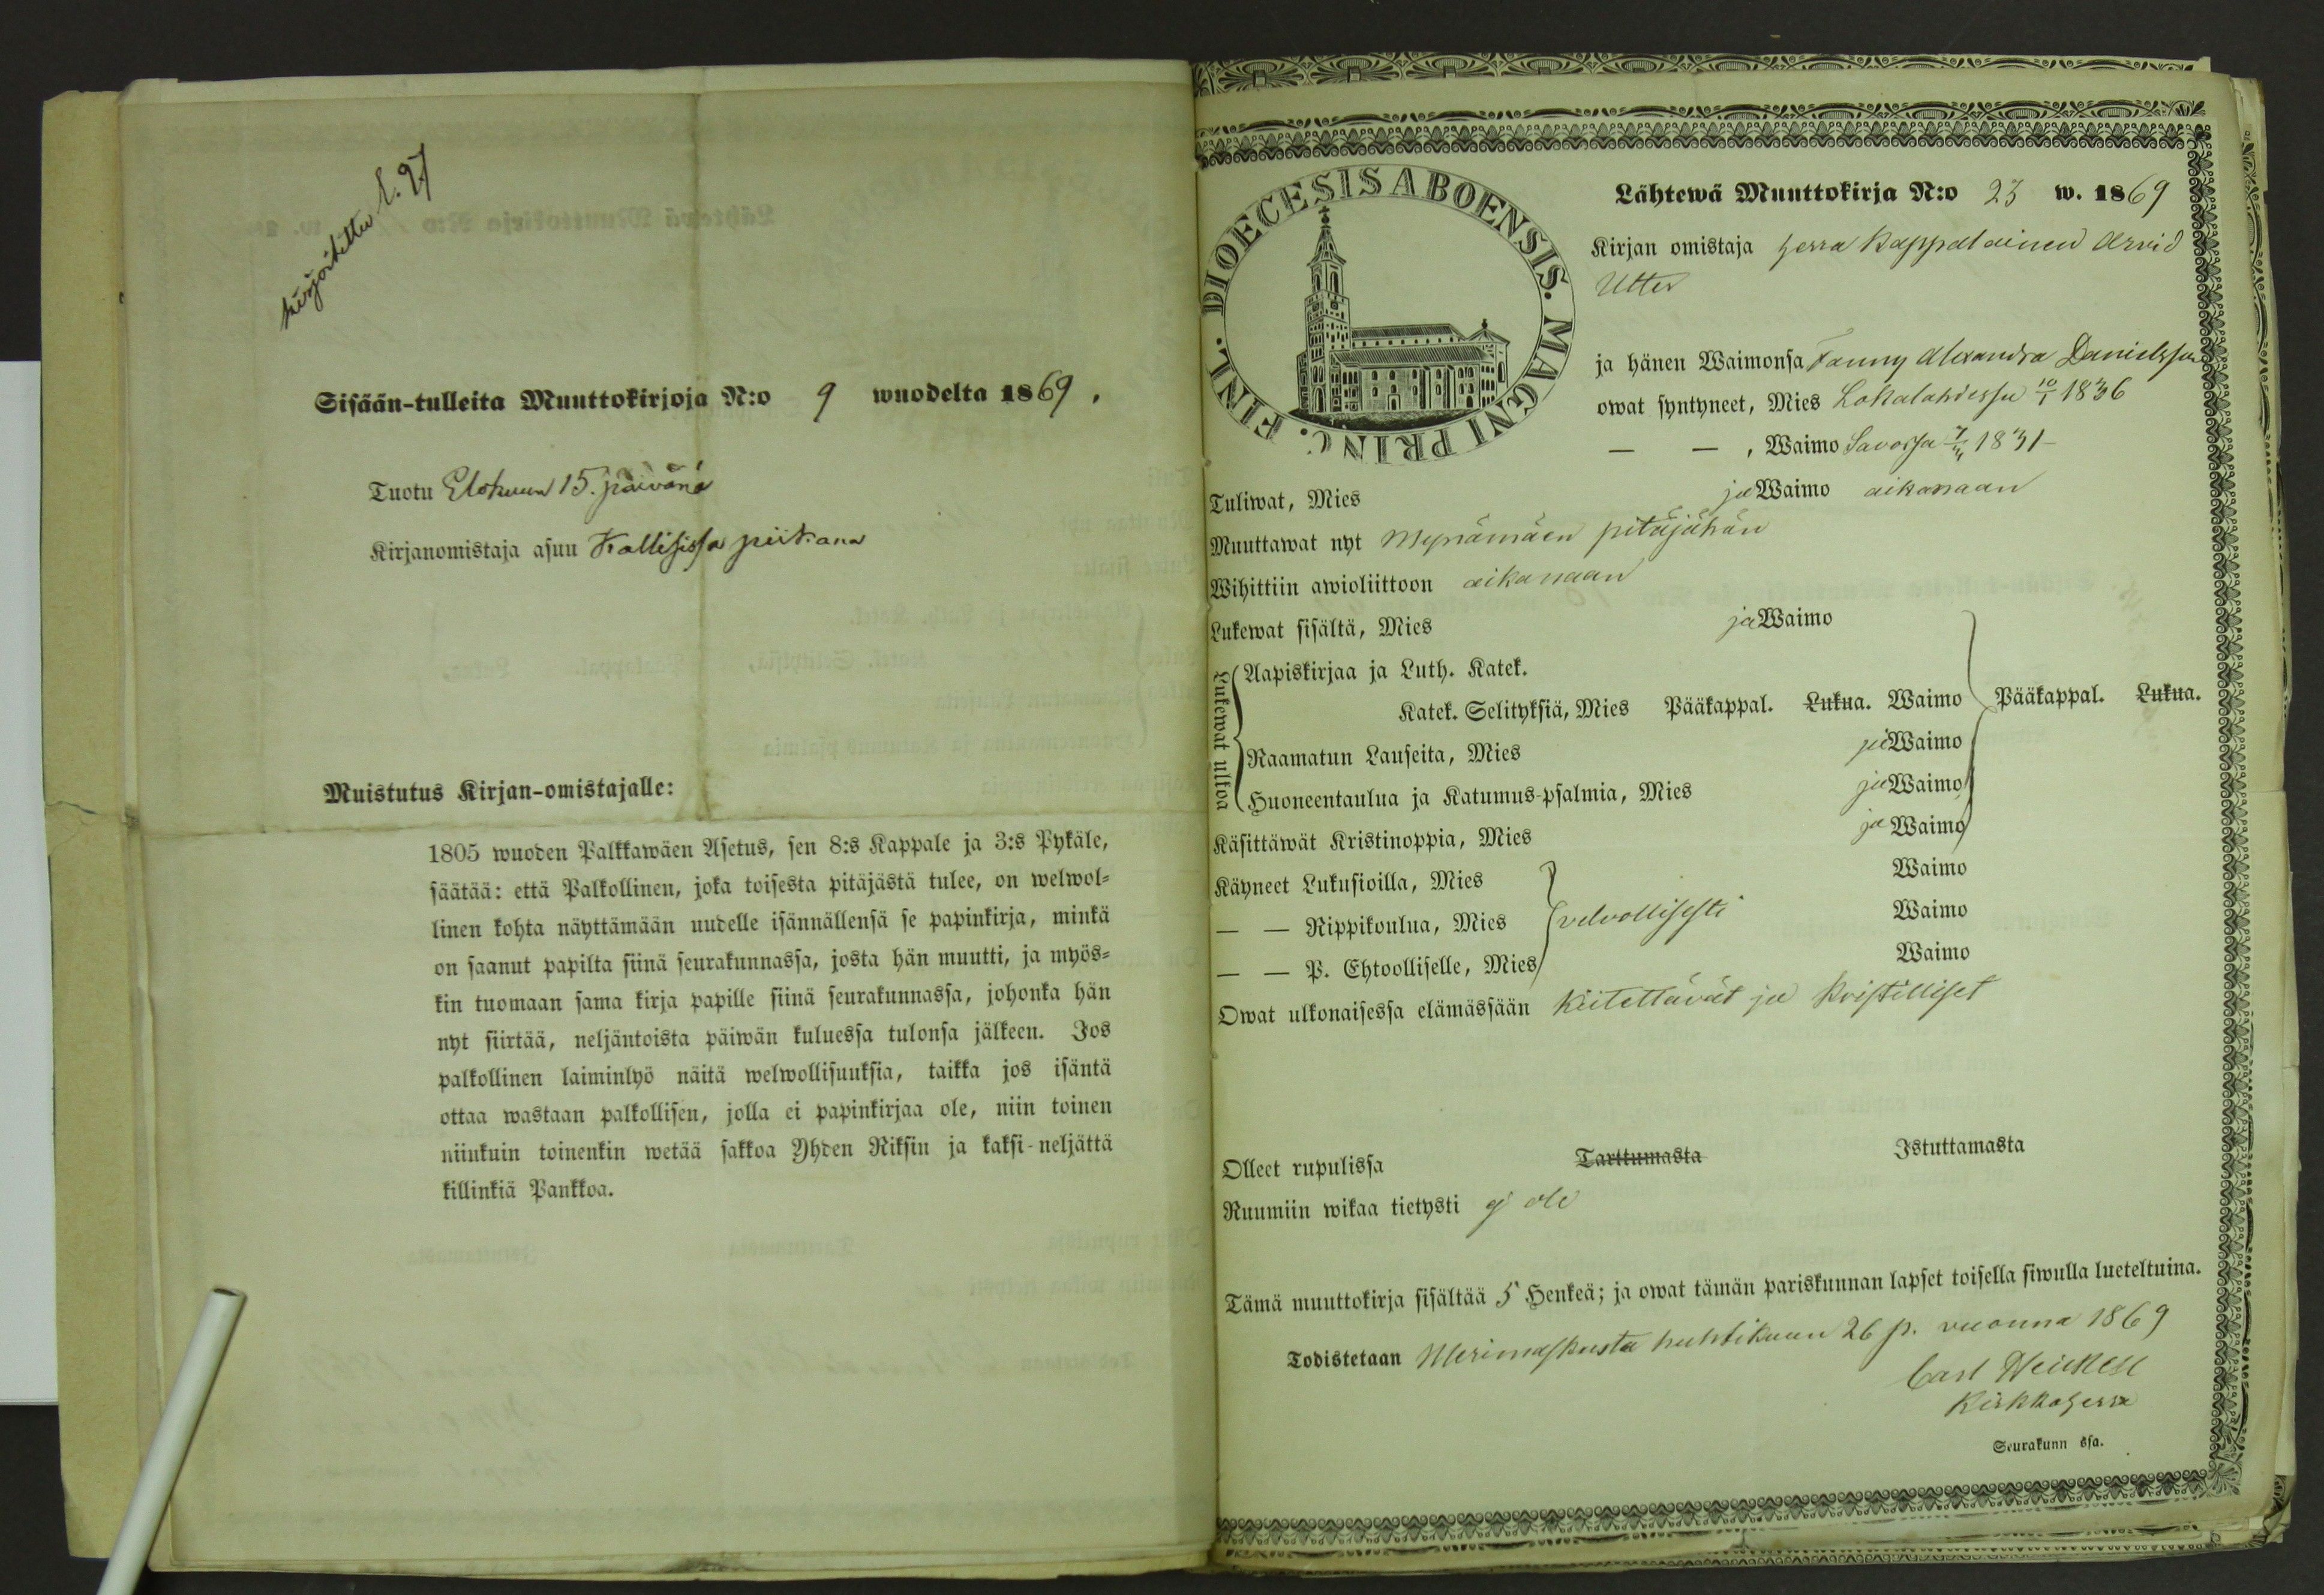 kirjoitettu S. 97
Sisään-tulleita Muuttokirjoja N:o 9 wuodelta 1869.
Tuotu Elokuun 15. päivänä
Kirjanomistaja asuu Kallisissa piikana
Muistutus Kirjan-omistajalle:
1805 wuoden Palkkawäen Asetus, sen 8:s Kappale ja 3:s Pykäle,
säätää: että Palkollinen, joka toisesta pitäjästä tulee, on welwol-
linen kohta näyttämään uudelle isännällensä se papinkirja, minkä
on saanut papilta siinä seurakunnassa, josta hän muutti, ja myös-
kin tuomaan sama kirja papille siinä seurakunnassa, johonka hän
nyt siirtää, neljäntoista päiwän kuluessa tulonsa jälkeen. Jos
palkollinen laiminlyö näitä welwollisuuksia, taikka jos isäntä
ottaa wastaan palkollisen, jolla ei papinkirjaa ole, niin toinen
niinkuin toinenkin wetää sakkoa Yhden Riksin ja kaksi-neljättä
killinkiä Pankkoa.
DIOECESIS ABOENSIS. MAGNI PRINC. FINL.
Lähtewä Muuttokirja N:o 23 w. 1869
Kirjan omistaja herra Kappalainen Arvid
Utter
ja hänen Waimonsa Fanny Alexandra Danielsson
owat syntyneet, Mies Lokalahdessa 10/1 1836
— — , Waimo Savossa 1831
Tuliwat, Mies ja Waimo aikanaan
Muuttawat nyt Mynämäen pitäjähän
Wihittiin awioliittoon aikanaan
Lukewat sisältä, Mies ja Waimo
Lukewat ulkoa
Aapiskirjaa ja Luth. Katek.
Katek. Selityksiä, Mies Pääkappal. Lukua. Waimo Pääkappal. Lukua.
Raamatun Lauseita, Mies ja Waimo
Huoneentaulua ja Katumus-psalmia, Mies ja Waimo
Käsittäwät Kristinoppia, Mies ja Waimo
Käyneet Lukusioilla, Mies Waimo
— — Rippikoulua, Mies velvollisesti Waimo
— — P. Ehtoolliselle, Mies Waimo
Owat ulkonaisessa elämässään kiitettävät ja kristilliset
Olleet rupulissa Tarttumasta Istuttamasta
Ruumiin wikaa tietysti ej ole
Tämä muuttokirja sisältää 5 Henkeä; ja owat tämän pariskunnan lapset toisella siwulla lueteltuina.
Todistetaan Merimaskusta huhtikuun 26 p. vuonna 1869
Carl
Kirkkoherra
Seurakunn ssa.